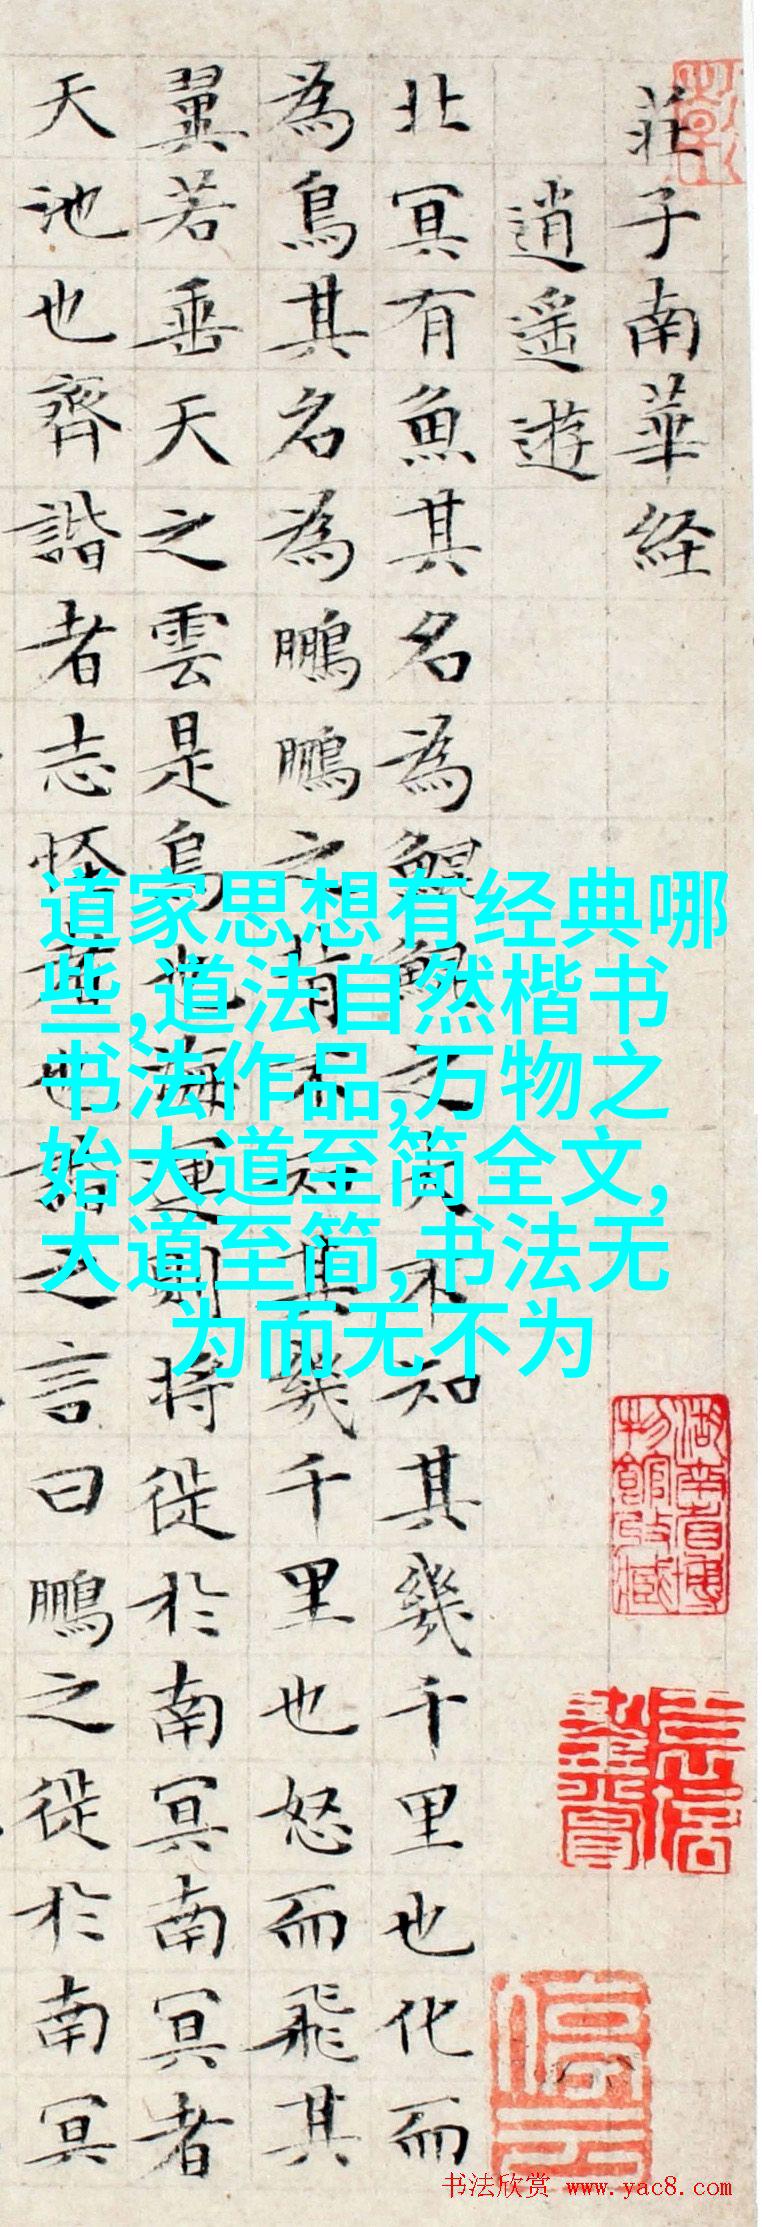 莊子南華経
逍遥遊
北冥有魚其名為鯤鯤之大不知其幾千里也化而
為鳥其名為鵬鵬之背不知其幾千里也怒而飛其
翼若垂天之雲是鳥也海運則將徙於南冥南冥者
天池也齊諧者志怪者也諧之言曰鵬之徙於南冥
道家思想有经典哪
些,道法自然楷书
书法作品,万物之
始大道至简全文,
大道至简,书法无
为而无不为
湖南省博
物館收藏
书法欣赏 www.yac8.com